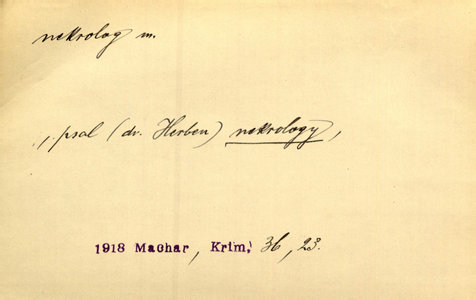 nekrolog m.
,, psal (dr. Herben) nekrology,
1918 Machar, Krim, 36, 23.